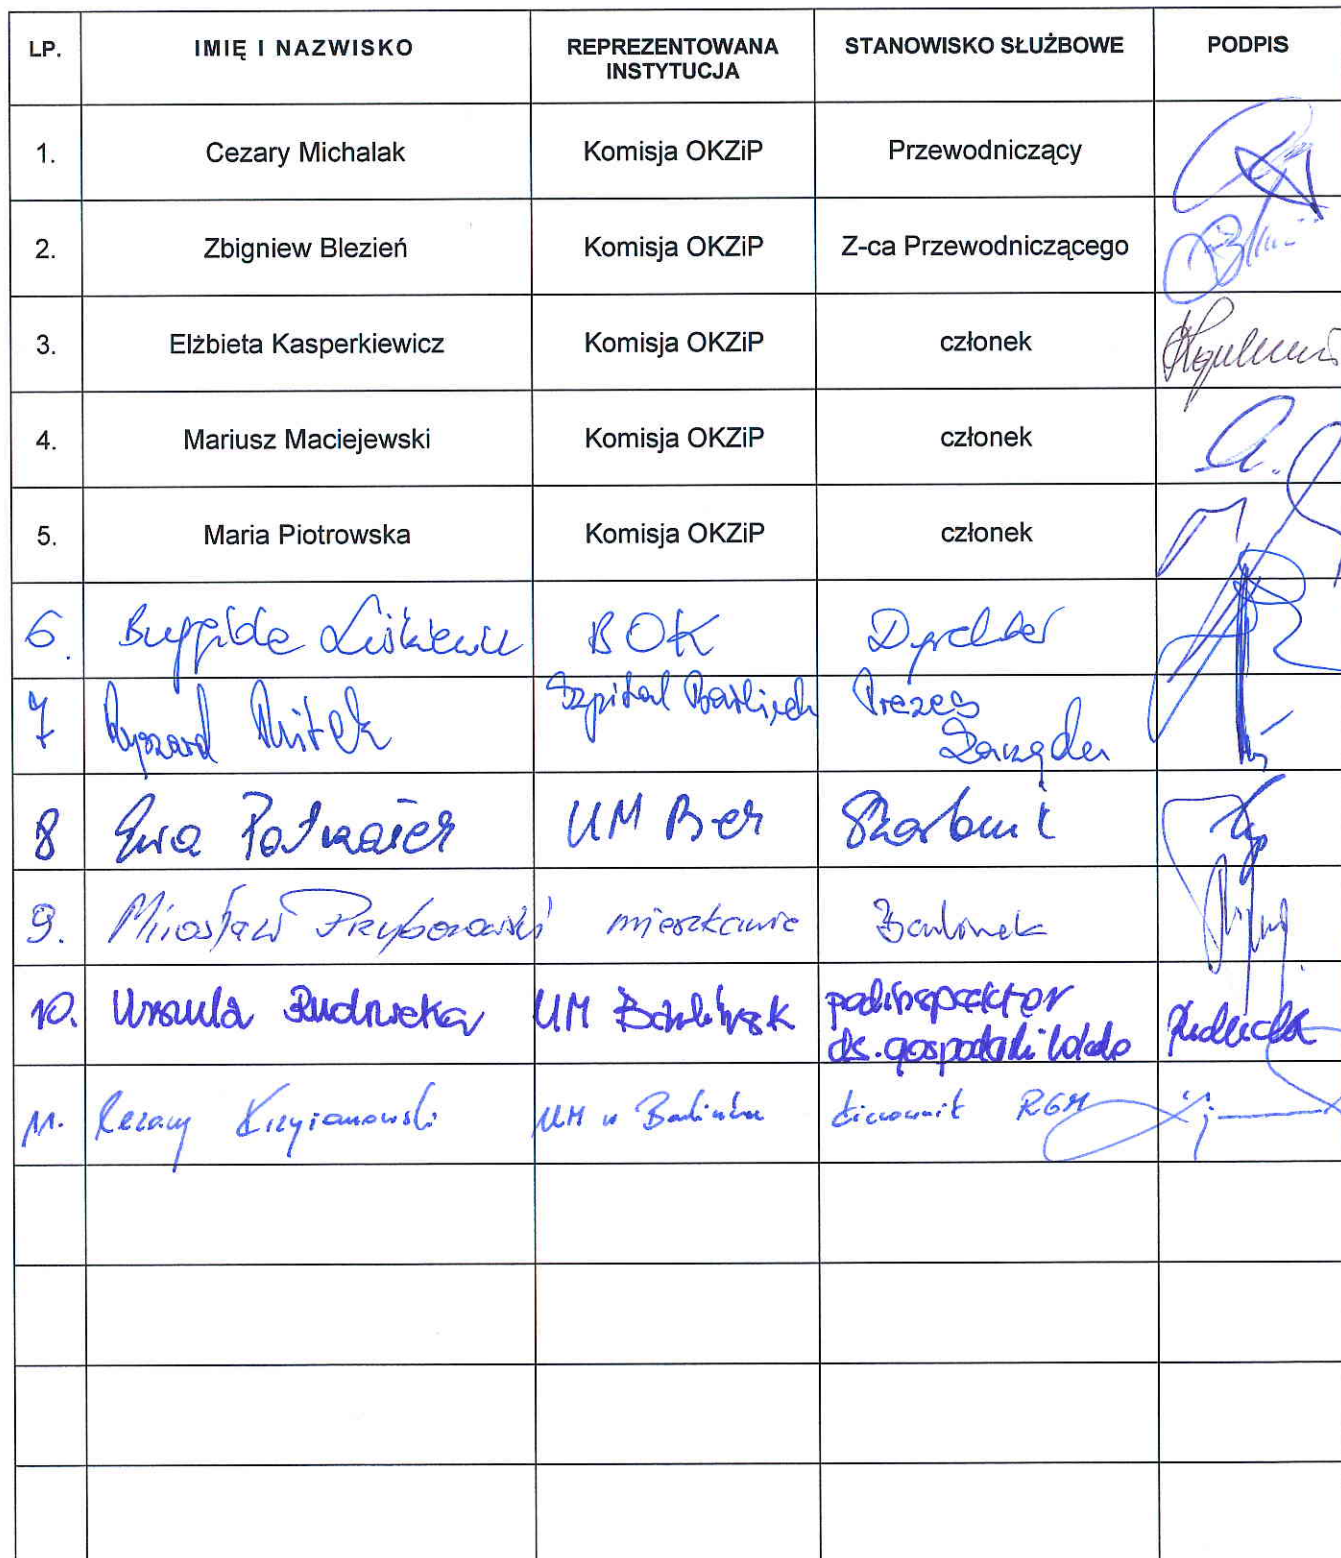 LP. IMIĘ I NAZWISKO REPREZENTOWANA INSTYTUCJA STANOWISKO SŁUŻBOWE PODPIS
1. Cezary Michalak Komisja OKZiP Przewodniczący
2. Zbigniew Blezień Komisja OKZiP Z-ca Przewodniczącego
3. Elżbieta Kasperkiewicz Komisja OKZiP członek
4. Mariusz Maciejewski Komisja OKZiP członek
5. Maria Piotrowska Komisja OKZiP członek
6. BOK Dyrektor
7 Ryszard Mitek Szpital Barlinek Prezes
Zarządu
8 Ewa UM B-ek Skarbnik
9. Mirosław Przyborowski mieszkaniec Barlinek
10. Urszula Rudnicka UM Barlinek podinspektor
ds. gospodarki lokalo
11. Cezary Krzyżanowski UM w Barlinku kierownik RGM